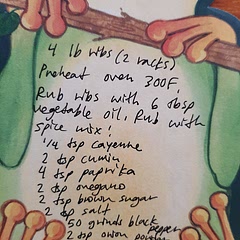 4 lb ribs (2 racks)
Preheat oven 300F.
Rub ribs with 6 tbsp
vegetable oil. Rub with
spice mix:
1/4 tsp cayenne
2 tsp cumin
4 tsp paprika
2 tsp oregano
2 tsp brown sugar
2 tsp salt
50 grinds black pepper
2 tsp onion powder